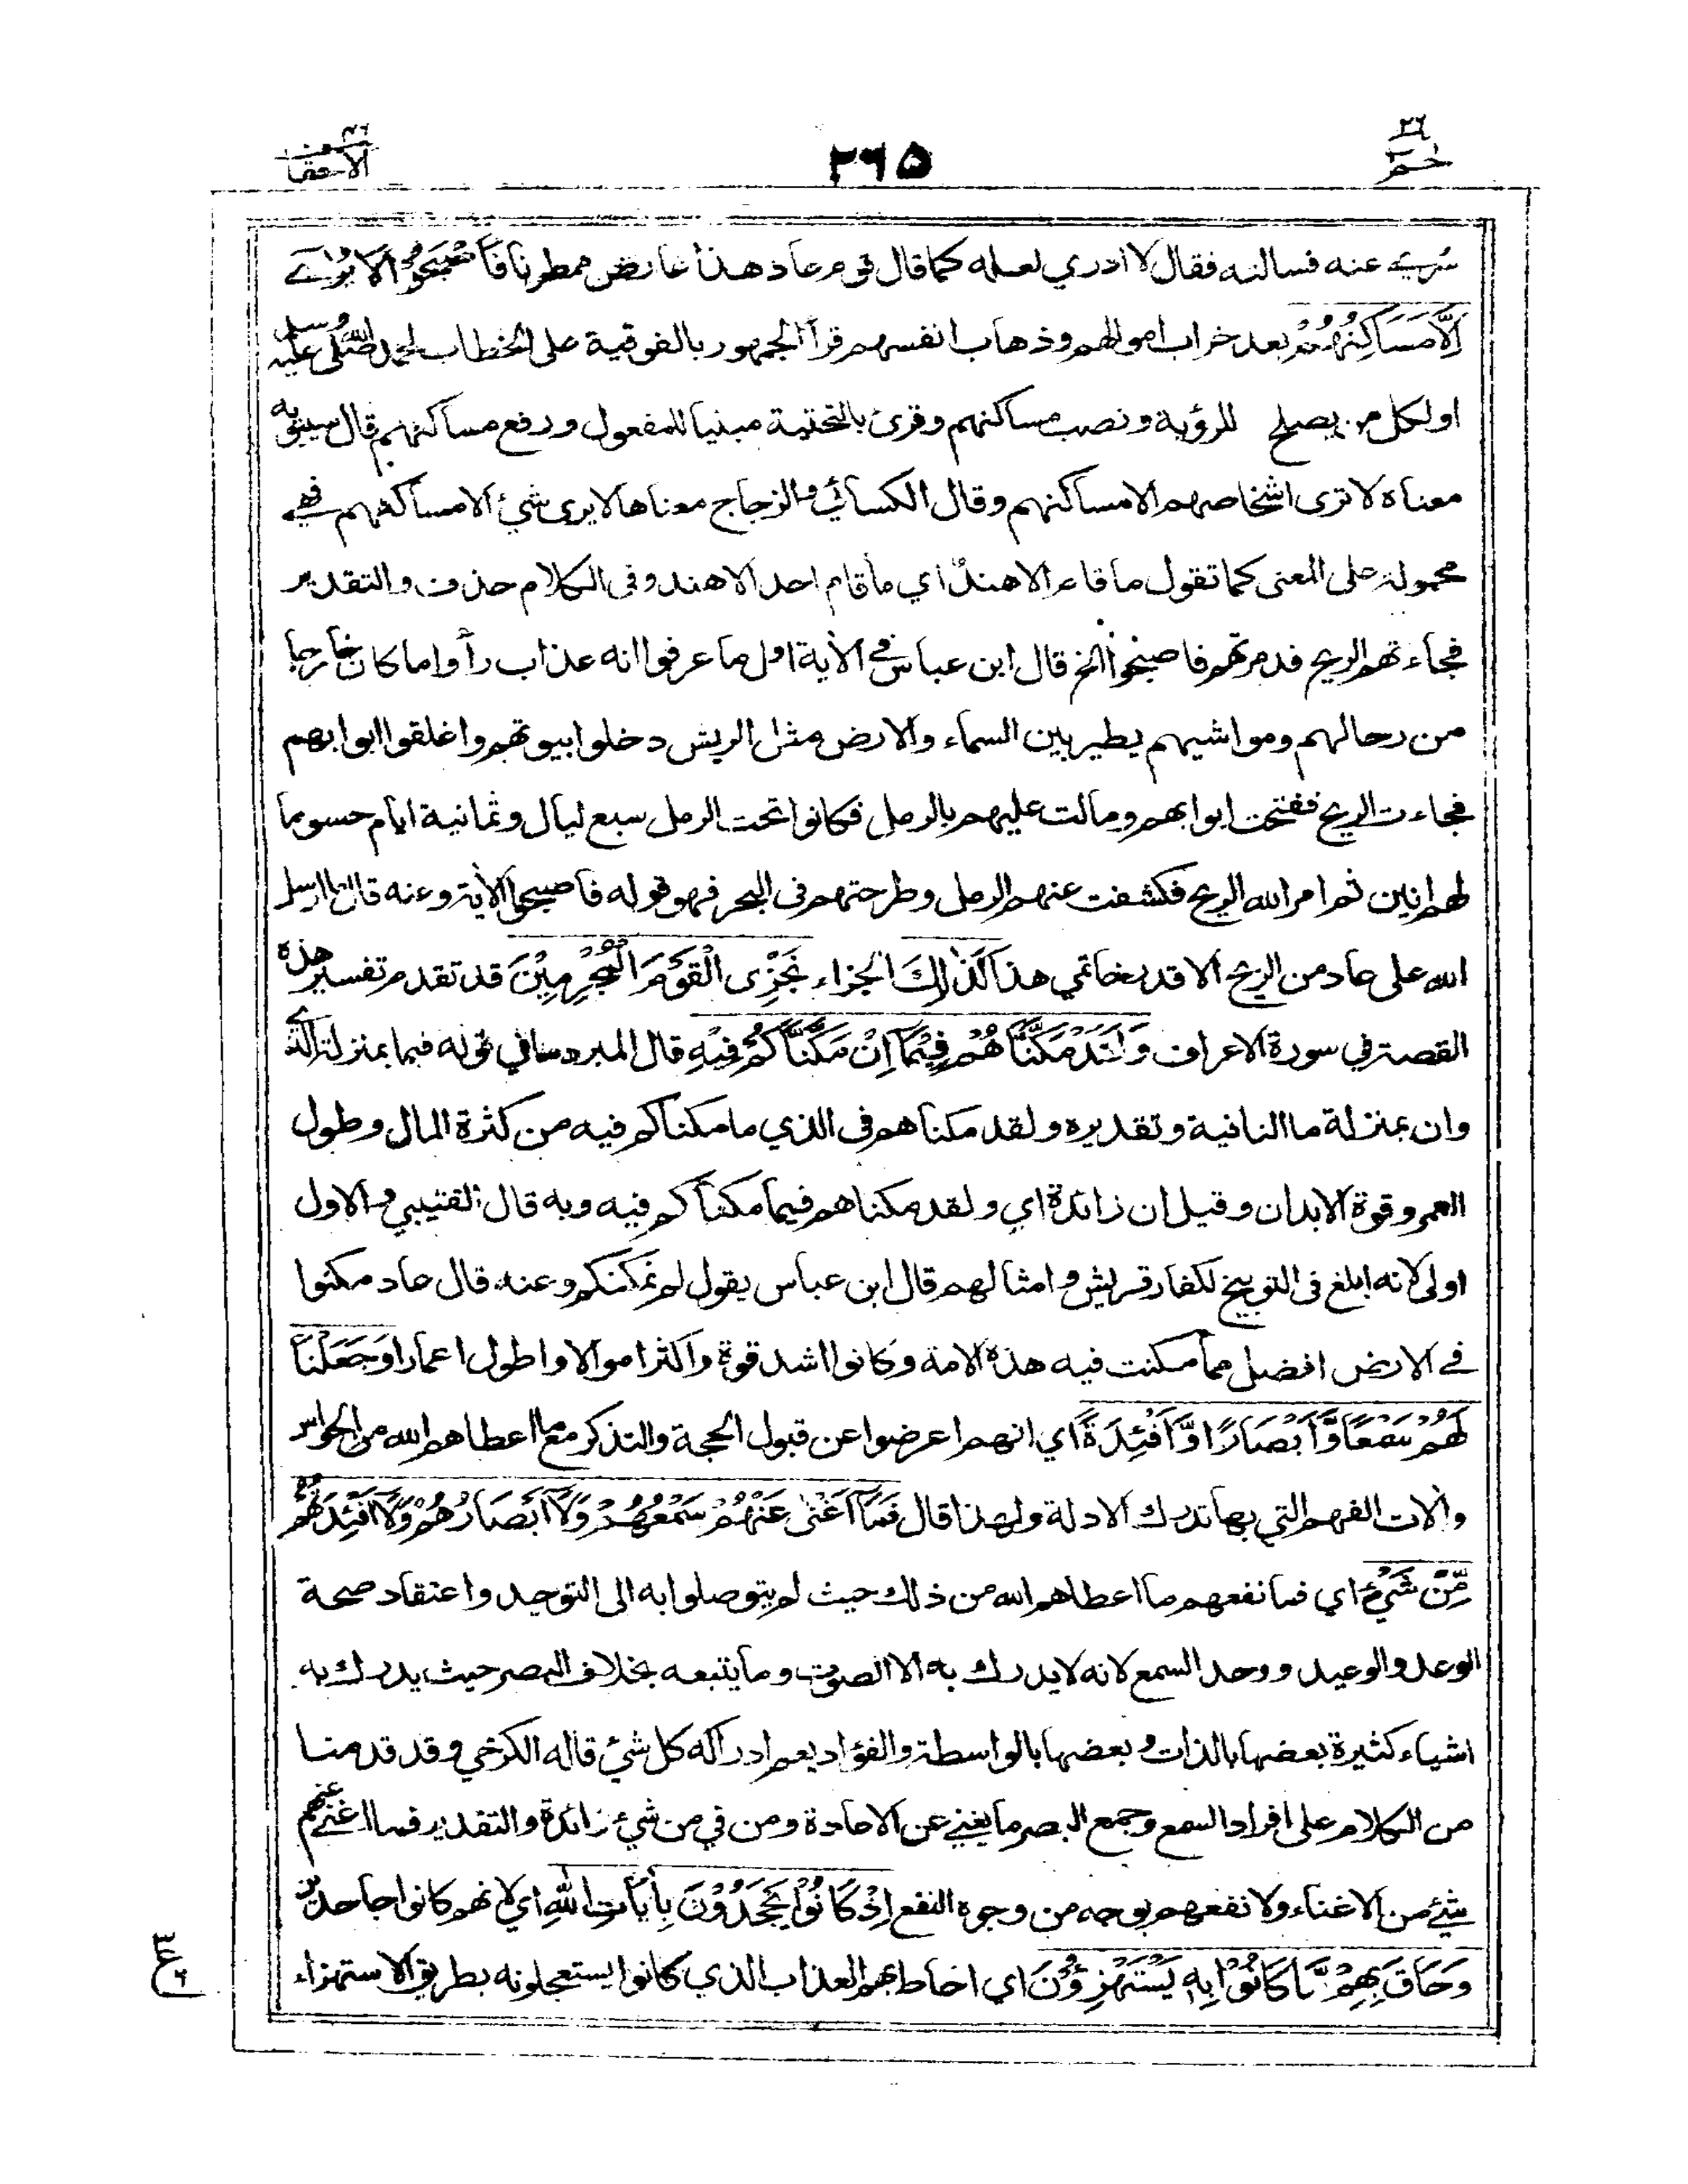 ٢٦
حم
٢٦٥
٤٦
الاحقاف
سري عنه فسالته فقال لا ادري لعله كما قال قوم عاد هذا عارض ممطرنا فَأَصْبَحُوْا لَا يُرٰى
اِلَّا مَسَاكِنُهُمْ بعد خراب اموالهم وذهاب انفسهم قرأ الجمهور بالفوقية على الخطاب لمحمد صلى الله عليه وسلم
او لكل من يصلح للرؤية ونصب مساكنهم وقرئ بالتحتية مبنيا للمفعول ورفع مساكنهم قال سيبويه
معناه لا ترى اشخاصهم الا مساكنهم وقال الكسائي والزجاج معناها لا يرى شئ الا مساكنهم فهي
محمولة على المعنى كما تقول ما قام الا هند اي ما قام احد الا هند وفى الكلام حذف والتقدير
فجاءتهم الريح فدمرتهم فاصبحوا الخ قال ابن عباس في الأية اول ما عرفوا انه عذاب رأوا ما كان خارجا
من رحالهم ومواشيهم يطير بين السماء والارض مثل الريش دخلوا بيوتهم واغلقوا ابوابهم
فجاءت الريح ففتحت ابوابهم ومالت عليهم بالرمل فكانوا تحت الرمل سبع ليال وثمانية ايام حسوما
لهم انين ثم امر الله الريح فكشفت عنهم الرمل وطرحتهم فى البحر فهو قوله فاصبحوا الأية وعنه قال ما ارسل
الله على عاد من الريح الا قدر خاتمي هذا كَذٰلِكَ الجزاء نَجْزِى الْقَوْمَ الْمُجْرِمِيْنَ قد تقدم تفسير هذه
القصة في سورة الاعراف وَلَقَدْ مَكَّنَّاهُمْ فِيْمَا اِنْ مَكَّنَّاكُمْ فِيْهِ قال المبرد ما في قوله فيما بمنزلة الذي
وان بمنزلة ما النافية وتقديره ولقد مكناهم فى الذي ما مكناكم فيه من كثرة المال وطول
العمر وقوة الابدان وقيل ان زائدة اي ولقد مكناهم فيما مكناكم فيه وبه قال القتيبي والاول
اولى لانه ابلغ فى التوبيخ لكفار قريش وامثالهم قال ابن عباس يقول لم نمكنكم وعنه قال عاد مكنوا
في الارض افضل مما مكنت فيه هذه الامة وكانوا اشد قوة واكثر اموالا واطول اعمارا وَجَعَلْنَا
لَهُمْ سَمْعًا وَّاَبْصَارًا وَّاَفْئِدَةً اي انهم اعرضوا عن قبول الحجة والتذكر مع ما اعطاهم الله من الحواس
والات الفهم التي بها تدرك الادلة ولهذا قال فَمَا اَغْنٰى عَنْهُمْ سَمْعُهُمْ وَلَا اَبْصَارُهُمْ وَلَا اَفْئِدَتُهُمْ
مِّنْ شَيْءٍ اي فما نفعهم ما اعطاهم الله من ذلك حيث لم يتوصلوا به الى التوحيد واعتقاد صحة
الوعد والوعيد ووحد السمع لانه لا يدرك به الا الصوت وما يتبعه بخلاف البصر حيث يدرك به
اشياء كثيرة بعضها بالذات وبعضها بالواسطة والفؤاد يعم ادراكه كل شئ قاله الكرخي وقد قدمنا
من الكلام على افراد السمع وجمع البصر ما يغني عن الاعادة ومن في من شئ زائدة والتقدير فما اغنى عنهم
شئ من الاغناء ولا نفعهم بوجه من وجوه النفع اِذْ كَانُوْا يَجْحَدُوْنَ بِأٰيَاتِ اللّٰهِ اي لانهم كانوا جاحدين
وَحَاقَ بِهِمْ مَّا كَانُوْا بِهٖ يَسْتَهْزِؤُنَ اي احاط بهم العذاب الذي كانوا يستعجلونه بطريق الاستهزاء